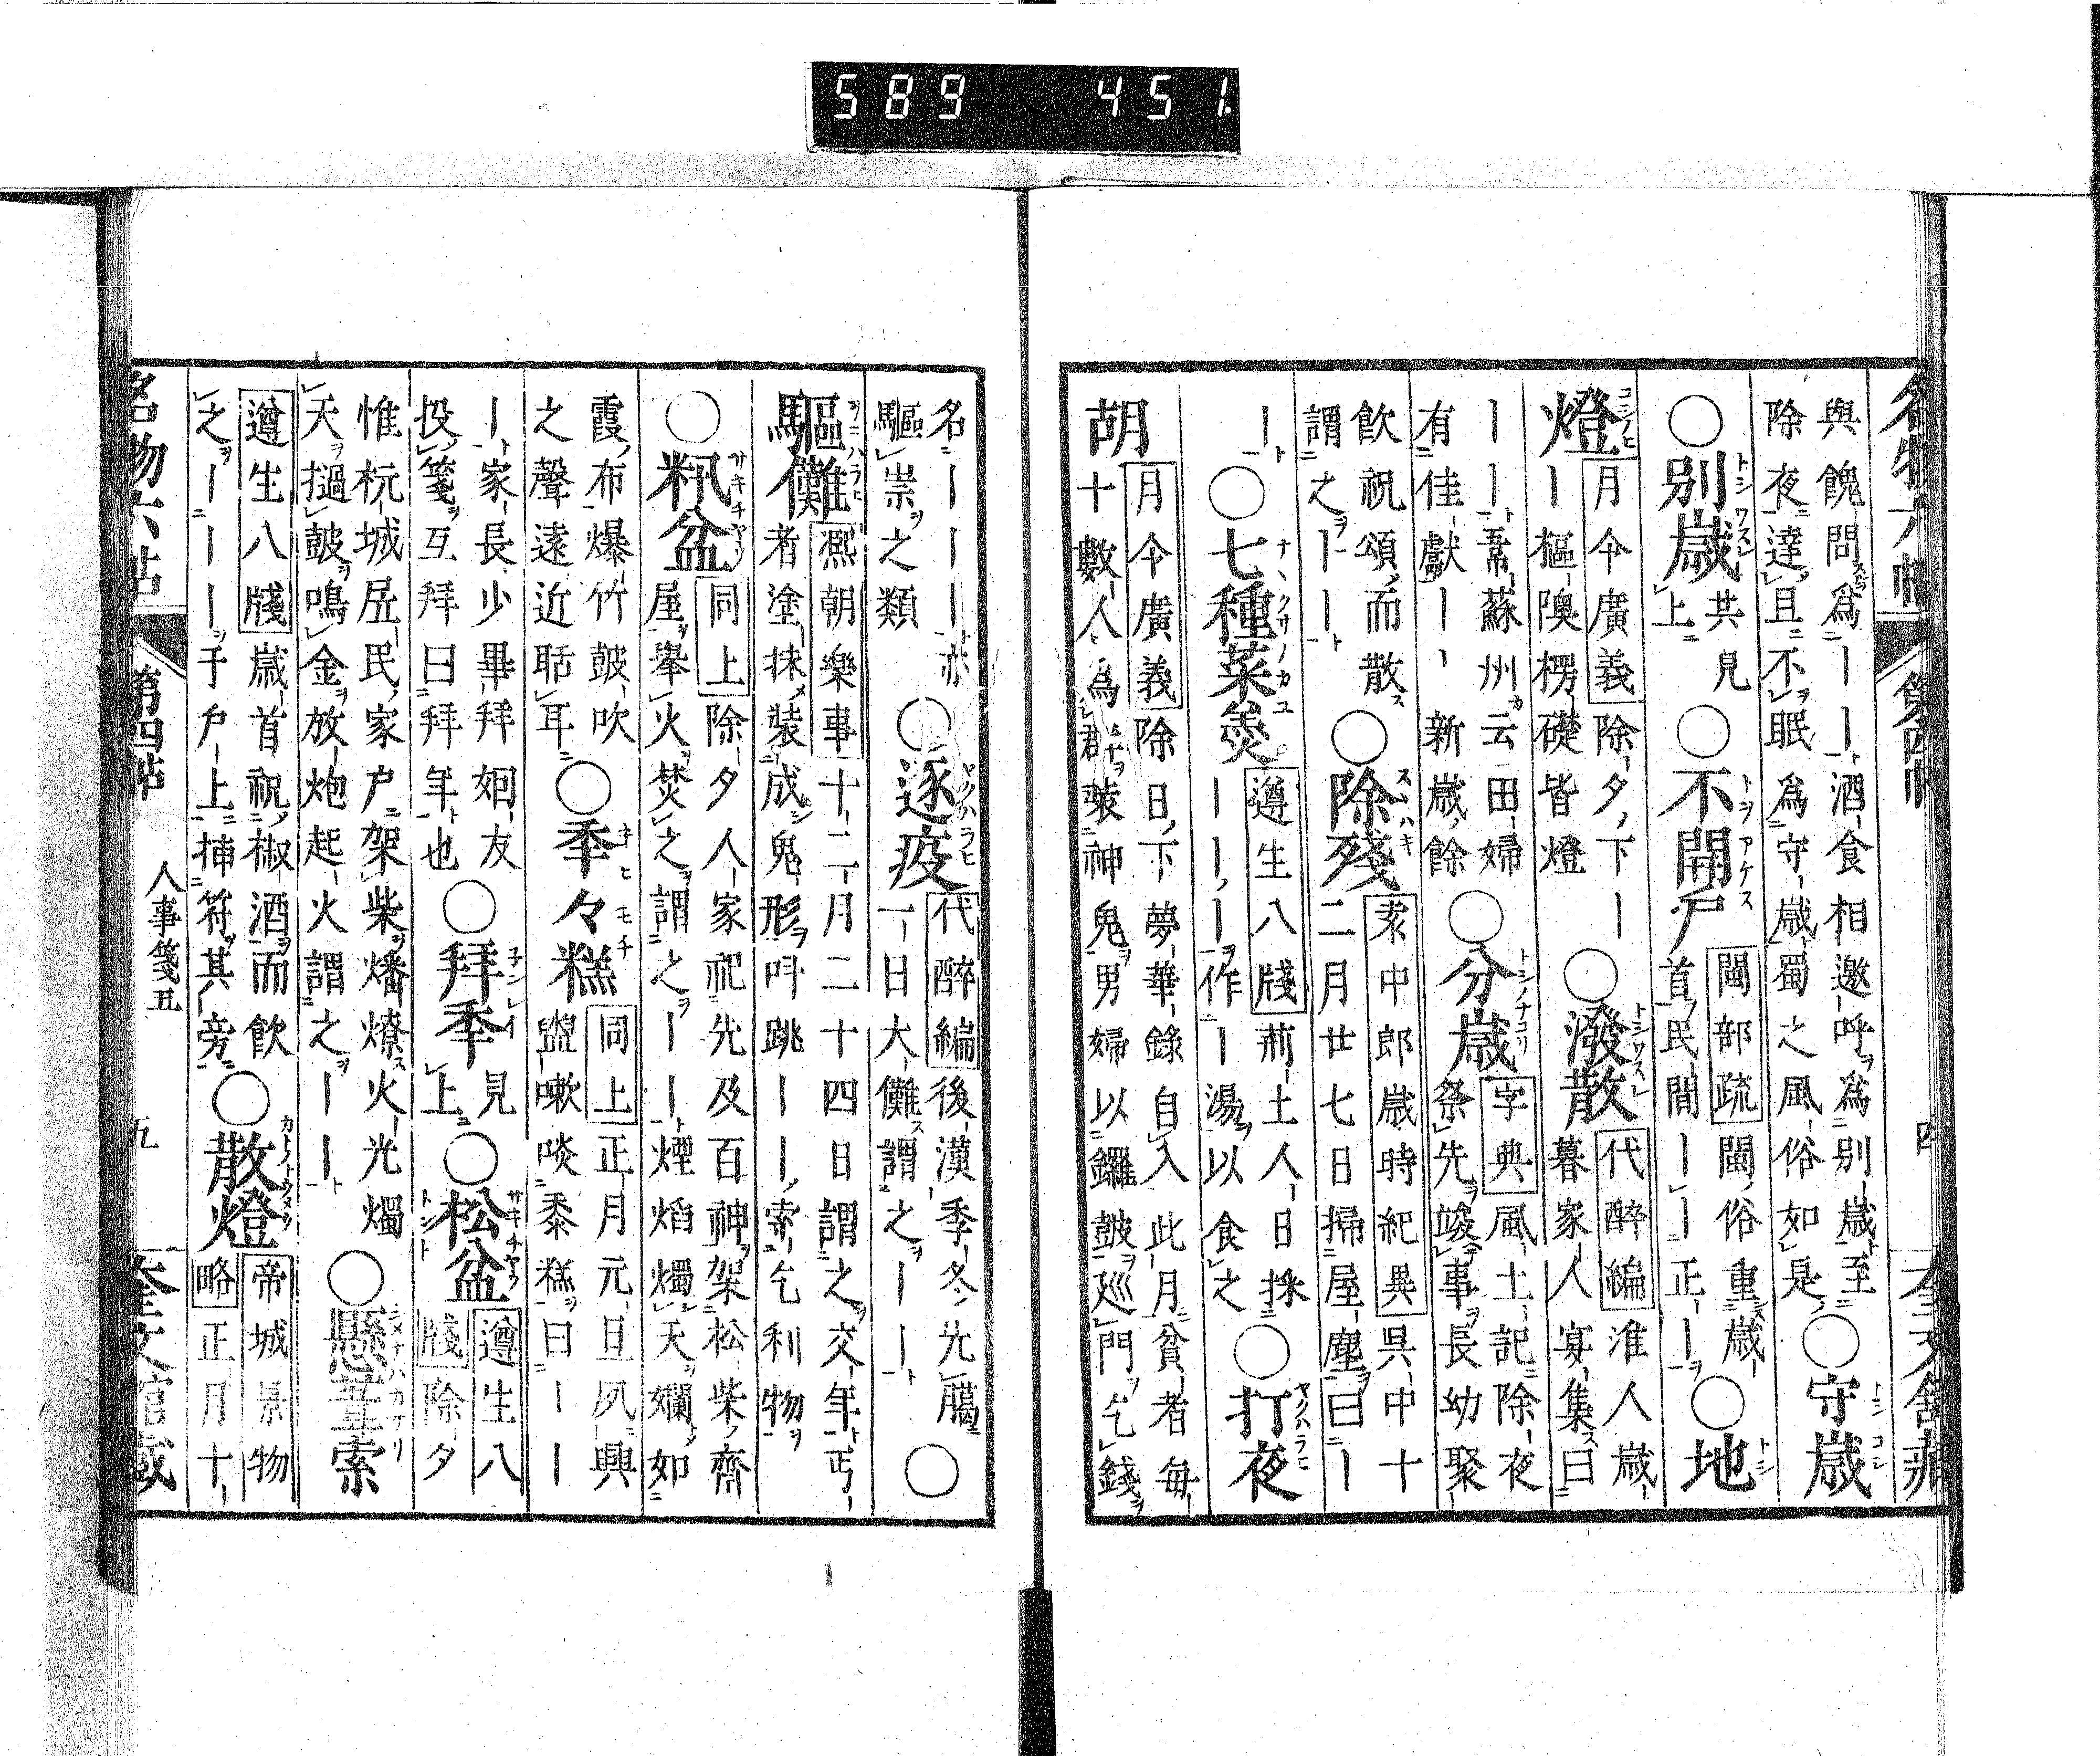 589 451
名物六帖 第四帖 四 奎文館藏
與餽問爲｜｜酒食相邀呼爲別歲至
除夜達且不眠爲守歲蜀之風俗如是
○守歲
○別歲
共見
上
○不開戶
閩部疏閩俗重歲
首民間｜｜正｜
○地
燈
月令廣義除夕下｜
｜樞隩楞礎皆燈
○潑散
代醉編淮人歲
暮家人宴集曰
｜｜韋蘇州云田婦
有佳獻｜｜新歲餘
○分歲
字典風土記除夜
祭先竣事長幼聚
飲祝頌而散
謂之｜｜
○除殘
袁中郎歲時紀異吳中十
二月廿七日掃屋塵曰｜
｜
○七種菜羮
遵生八牋荊土人日採
｜｜｜作｜湯以食之
○打夜
胡
月令廣義除日下夢華錄自入此月貧者每
十數人爲群裝神鬼男婦以鑼鼓巡門乞錢
名｜｜｜亦
驅祟之類
○逐疫
代醉編後漢季冬先臈
一日大儺謂之｜｜
○
驅儺
凞朝樂事十二月二十四日謂之交年丐
者塗抹裝成鬼形叫跳｜｜索乞利物
○籸盆
同上除夕人家祀先及百神架松柴齊
屋舉火焚之謂之｜｜煙焰燭天爛如
霞布爆竹鼓吹
之聲遠近聒耳
○季々糕
同上正月元旦夙興
盥嗽啖黍糕曰｜｜
｜家長少畢拜姻友
投箋互拜曰拜年也
○拜季
見
上
○松盆
遵生八
牋除夕
惟杭城居民家戶架柴燔燎火光燭
天撾鼓鳴金放炮起火謂之｜｜
○懸葦索
遵生八牋歲首祝椒酒而飲
之｜｜｜于戶上揷符其旁
○散燈
帝城景物
略正月十
名物六帖 第四帖 人事箋五 五 奎文館藏